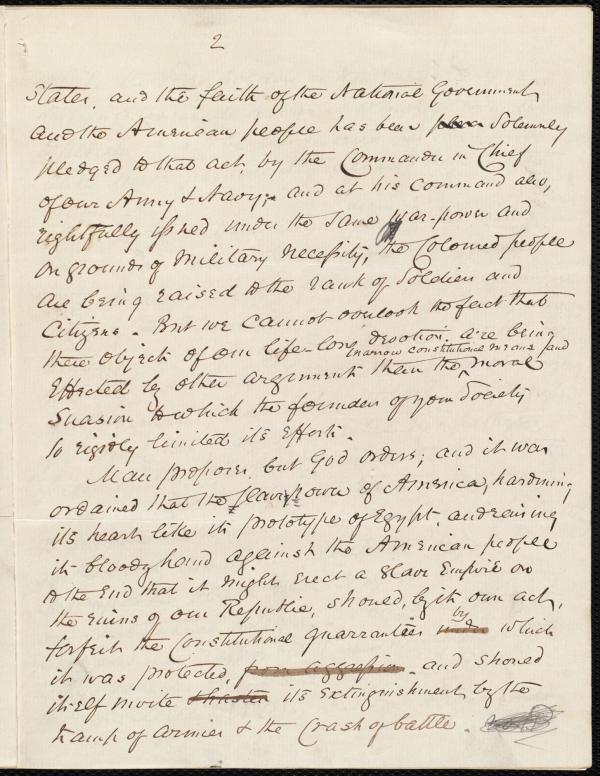 2
States, and the faith of the National Government
and the American people has been solemnly
pledged to that act, by the Commander in Chief
of our Army & Navy; and at his command also,
rightfully issued under the same war-power and
on grounds of military necessity, the Colored people
are being raised to the rank of Soldiers and
Citizens. But we cannot overlook the fact that
these objects of our life-long devotion, are being
(narrow constitutional means and
effected by other arguments than the moral
Suasion to which the founders of your Society
so rigidly limited its efforts.
Man proposes but God orders; and it was
ordained that the slave power of America, hardening
its heart like its prototype of Egypt, and raising
its bloody hand against the American people
to the End that it might erect a Slave Empire on
the ruins of our Republic, should, by its own act,
by
forfeit the Constitutional guarranties under which
it was protected, from aggression, and should
itself invite its extinguishment by the
tramp of armies & the Crash of battle.